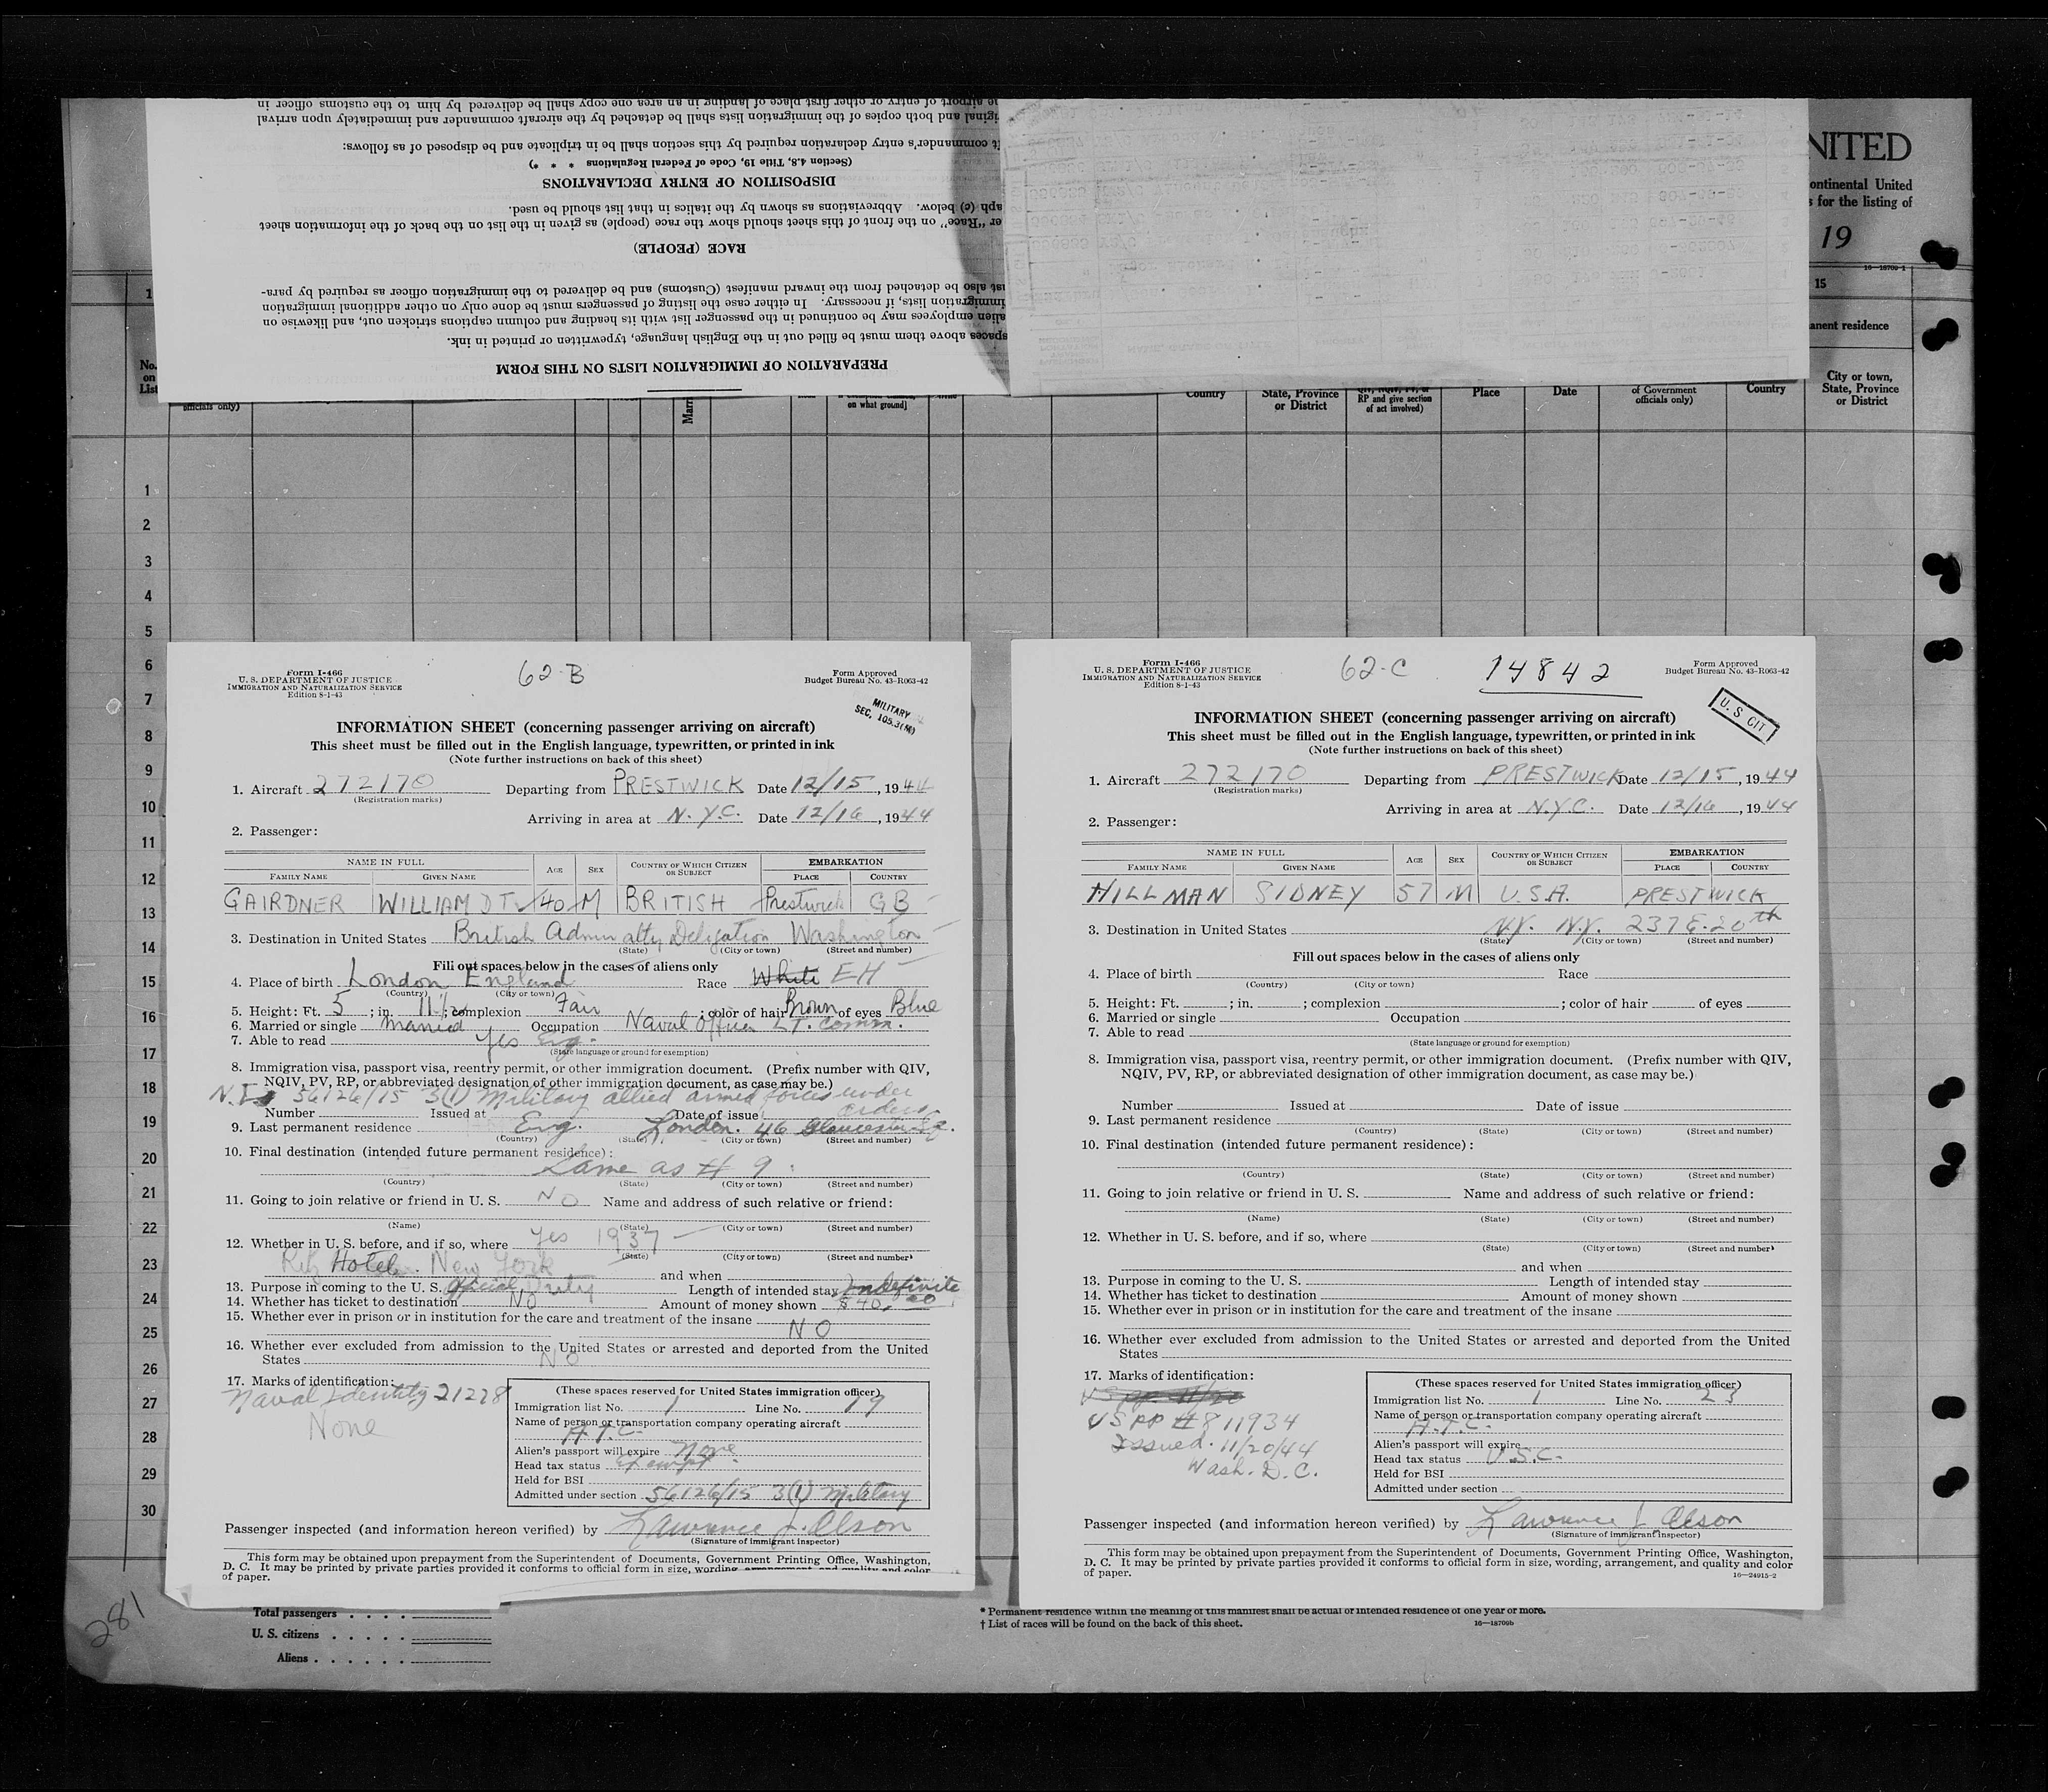 he airport of entry or other first place of landing in an area one copy shall be delivered by him to the customs officer in
iginal and both copies of the immigration lists shall be detached by the aircraft commander and immediately upon arrival
ft commander's entry declaration required by this section shall be in triplicate and be disposed of as follows:
(Section 4.8, Title 19, Code of Federal Regulations * * *)
DISPOSITION OF ENTRY DECLARATIONS
aph (c) below. Abbreviations as shown by the italics in that list should be used.
er "Race" on the front of this sheet should show the race (people) as given in the list on the back of the information sheet
RACE (PEOPLE)
ust also be detached from the inward manifest (Customs) and be delivered to the immigration officer as required by para-
immigration lists, if necessary. In either case the listing of passengers must be done only on other additional immigration
alien employees may be continued in the passenger list with its heading and column captions stricken out, and likewise on
spaces above them must be filled out in the English language, typewritten or printed in ink.
PREPARATION OF IMMIGRATION LISTS ON THIS FORM
NITED
ontinental United
s for the listing of
19
16—18709-1
1
15
anent residence
No. on List
officials only)
on what ground]
Country
State, Province or District
RP and give section of act involved)
Place
Date
of Government officials only)
Country
City or town, State, Province or District
1
2
3
4
5
6
7
8
9
10
11
12
13
14
15
16
17
18
19
20
21
22
23
24
25
26
27
28
29
30
Form I-466
U. S. DEPARTMENT OF JUSTICE
IMMIGRATION AND NATURALIZATION SERVICE
Edition 8-1-43
62-B
Form Approved
Budget Bureau No. 43-R063-42
MILITARY
SEC. 105.3(M)
INFORMATION SHEET (concerning passenger arriving on aircraft)
This sheet must be filled out in the English language, typewritten, or printed in ink
(Note further instructions on back of this sheet)
1. Aircraft 272170 Departing from PRESTWICK Date 12/15, 1944
(Registration marks)
Arriving in area at N.Y.C. Date 12/16, 1944
2. Passenger:
NAME IN FULL AGE SEX COUNTRY OF WHICH CITIZEN OR SUBJECT EMBARKATION
FAMILY NAME GIVEN NAME PLACE COUNTRY
GAIRDNER WILLIAM D T 40 M BRITISH Prestwick GB
3. Destination in United States British Admiralty Delegation Washington
(State) (City or town) (Street and number)
Fill out spaces below in the cases of aliens only
4. Place of birth London England Race White EH
(Country) (City or town)
5. Height: Ft. 5; in. 11½; complexion Fair; color of hair Brown of eyes Blue
6. Married or single Married Occupation Naval Officer LT. Comm.
7. Able to read Yes Eng.
(State language or ground for exemption)
8. Immigration visa, passport visa, reentry permit, or other immigration document. (Prefix number with QIV,
NQIV, PV, RP, or abbreviated designation of other immigration document, as case may be.)
56126/15 3(1) Military allied armed forces under orders
Number Issued at Date of issue
9. Last permanent residence Eng. London. 46
(Country) (State) (City or town) (Street and number)
10. Final destination (intended future permanent residence):
Same as # 9
(Country) (State) (City or town) (Street and number)
11. Going to join relative or friend in U. S. NO Name and address of such relative or friend:
(Name) (State) (City or town) (Street and number)
12. Whether in U. S. before, and if so, where Yes 1937
(State) (City or town) (Street and number)
Ritz Hotel. New York and when
13. Purpose in coming to the U. S. Official Duty Length of intended stay Indefinite
14. Whether has ticket to destination NO Amount of money shown $40.00
15. Whether ever in prison or in institution for the care and treatment of the insane
NO
16. Whether ever excluded from admission to the United States or arrested and deported from the United
States NO
17. Marks of identification:
Naval Identity 21228
None
(These spaces reserved for United States immigration officer)
Immigration list No. 1 Line No. 19
Name of person or transportation company operating aircraft
A.T.C.
Alien's passport will expire None
Head tax status Exempt
Held for BSI
Admitted under section 56126/15 3(1) Military
Passenger inspected (and information hereon verified) by Lawrence J. Olson
(Signature of immigrant inspector)
This form may be obtained upon prepayment from the Superintendent of Documents, Government Printing Office, Washington,
D. C. It may be printed by private parties provided it conforms to official form in size, wording, arrangement, and quality and color
of paper.
Form I-466
U. S. DEPARTMENT OF JUSTICE
IMMIGRATION AND NATURALIZATION SERVICE
Edition 8-1-43
62-C
14842
Form Approved
Budget Bureau No. 43-R063-42
U. S. CIT
INFORMATION SHEET (concerning passenger arriving on aircraft)
This sheet must be filled out in the English language, typewritten, or printed in ink
(Note further instructions on back of this sheet)
1. Aircraft 272170 Departing from PRESTWICK Date 12/15, 1944
(Registration marks)
Arriving in area at N.Y.C. Date 12/16, 1944
2. Passenger:
NAME IN FULL AGE SEX COUNTRY OF WHICH CITIZEN OR SUBJECT EMBARKATION
FAMILY NAME GIVEN NAME PLACE COUNTRY
HILLMAN SIDNEY 57 M U.S.A. PRESTWICK
3. Destination in United States N.Y. N.Y. 237 E. 20th
(State) (City or town) (Street and number)
Fill out spaces below in the cases of aliens only
4. Place of birth Race
(Country) (City or town)
5. Height: Ft. ; in. ; complexion ; color of hair of eyes
6. Married or single Occupation
7. Able to read
(State language or ground for exemption)
8. Immigration visa, passport visa, reentry permit, or other immigration document. (Prefix number with QIV,
NQIV, PV, RP, or abbreviated designation of other immigration document, as case may be.)
Number Issued at Date of issue
9. Last permanent residence
(Country) (State) (City or town) (Street and number)
10. Final destination (intended future permanent residence):
(Country) (State) (City or town) (Street and number)
11. Going to join relative or friend in U. S. Name and address of such relative or friend:
(Name) (State) (City or town) (Street and number)
12. Whether in U. S. before, and if so, where
(State) (City or town) (Street and number)
and when
13. Purpose in coming to the U. S. Length of intended stay
14. Whether has ticket to destination Amount of money shown
15. Whether ever in prison or in institution for the care and treatment of the insane
16. Whether ever excluded from admission to the United States or arrested and deported from the United
States
17. Marks of identification:
US PP # 811934
Issued. 11/20/44
Wash. D.C.
(These spaces reserved for United States immigration officer)
Immigration list No. 1 Line No. 23
Name of person or transportation company operating aircraft
A.T.C.
Alien's passport will expire
Head tax status U.S.C.
Held for BSI
Admitted under section
Passenger inspected (and information hereon verified) by Lawrence J. Olson
(Signature of immigrant inspector)
This form may be obtained upon prepayment from the Superintendent of Documents, Government Printing Office, Washington,
D. C. It may be printed by private parties provided it conforms to official form in size, wording, arrangement, and quality and color
of paper.
16—24915-2
281
Total passengers . . . .
U. S. citizens . . . . .
Aliens . . . . . .
* Permanent residence within the meaning of this manifest shall be actual or intended residence of one year or more.
† List of races will be found on the back of this sheet.
16—18709b